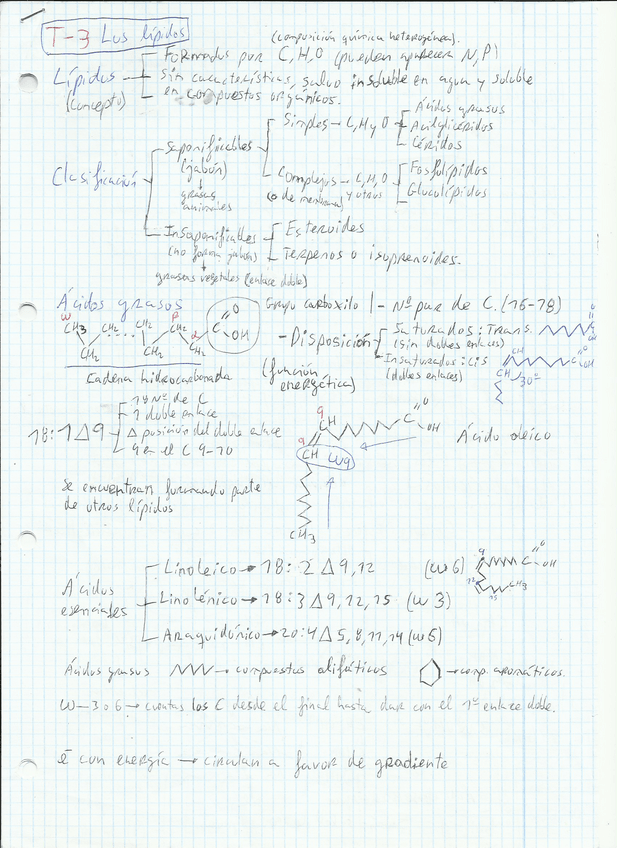 T-3 Los lípidos
(composición química heterogénea).
Lípidos (concepto)
Formados por C, H, O (pueden aparecer N, P)
sin características, salvo insoluble en agua y soluble
en compuestos orgánicos.
Clasificación
Saponificables (jabón)
↓
grasas animales
Simples → C, H y O
Ácidos grasos
Acilglicéridos
Céridos
Complejos → C, H, O y otros
(o de membrana)
Fosfolípidos
Glucolípidos
Insaponificables
(no forman jabón)
↓
grasas vegetales (enlace doble)
Esteroides
Terpenos o isoprenoides.
Ácidos grasos
ω CH3 CH2 CH2 ..... CH2 CH2 β CH2 α CH2 C O OH
Cadena hidrocarbonada
Grupo carboxilo
- Nº par de C. (16-18)
- Disposición
Saturados: Trans.
(sin dobles enlaces)
C O OH
Insaturados: cis
(dobles enlaces)
CH CH 30º C O OH
(función energética)
18:1Δ9
18 Nº de C
1 doble enlace
Δ posición del doble enlace
9 en el C 9-10
9 CH C O OH
9 CH ω9
CH3
Ácido oleico
Se encuentran formando parte
de otros lípidos
Ácidos esenciales
Linoleico → 18:2 Δ9,12 (ω6)
Linolénico → 18:3 Δ9,12,15 (ω3)
Araquidónico → 20:4 Δ5,8,11,14 (ω6)
9 12 15 C O OH CH3
Ácidos grasos → compuestos alifáticos → comp. aromáticos.
ω-3 o 6 → cuentas los C desde el final hasta dar con el 1º enlace doble.
ē con energía → circulan a favor de gradiente